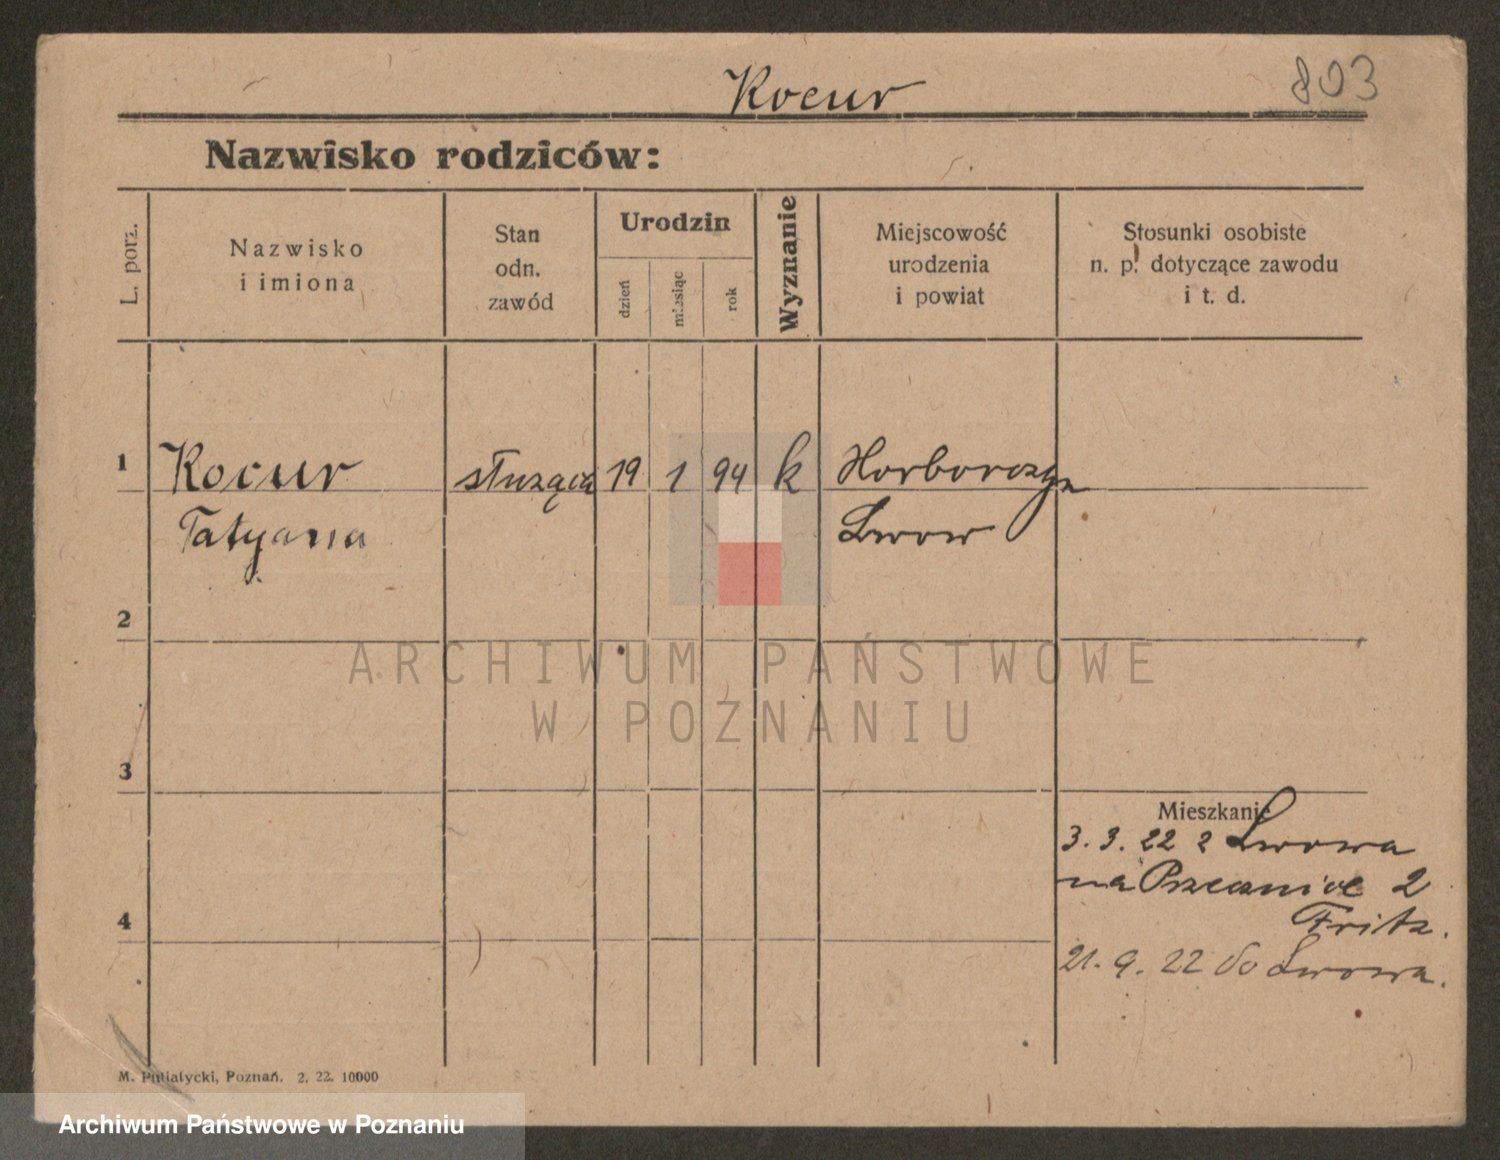 Kocur
803
Nazwisko rodziców:
L. porz.
Nazwisko
i imiona
Stan
odn.
zawód
Urodzin
dzień
miesiąc
rok
Wyznanie
Miejscowość
urodzenia
i powiat
Stosunki osobiste
n. p. dotyczące zawodu
i t. d.
1 Kocur służąca 19 1 94 k
Tatyana Lwow
2
3
Mieszkanie
3. 3. 22 z Lwowa
na 2
Fritz.
4
21. 9. 22 do Lwowa.
M. Putiatycki, Poznań. 2. 22. 10000
ARCHIWUM PAŃSTWOWE
W POZNANIU
Archiwum Państwowe w Poznaniu